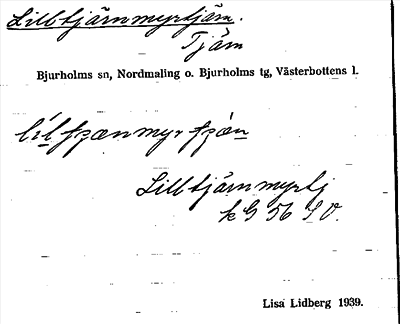 Lilltjärnmyrtjärn.
Tjärn
Bjurholms sn, Nordmaling o. Bjurholms tg, Västerbottens l.
Lilltjärnmyrtj
k G 56 S V.
Lisa Lidberg 1939.